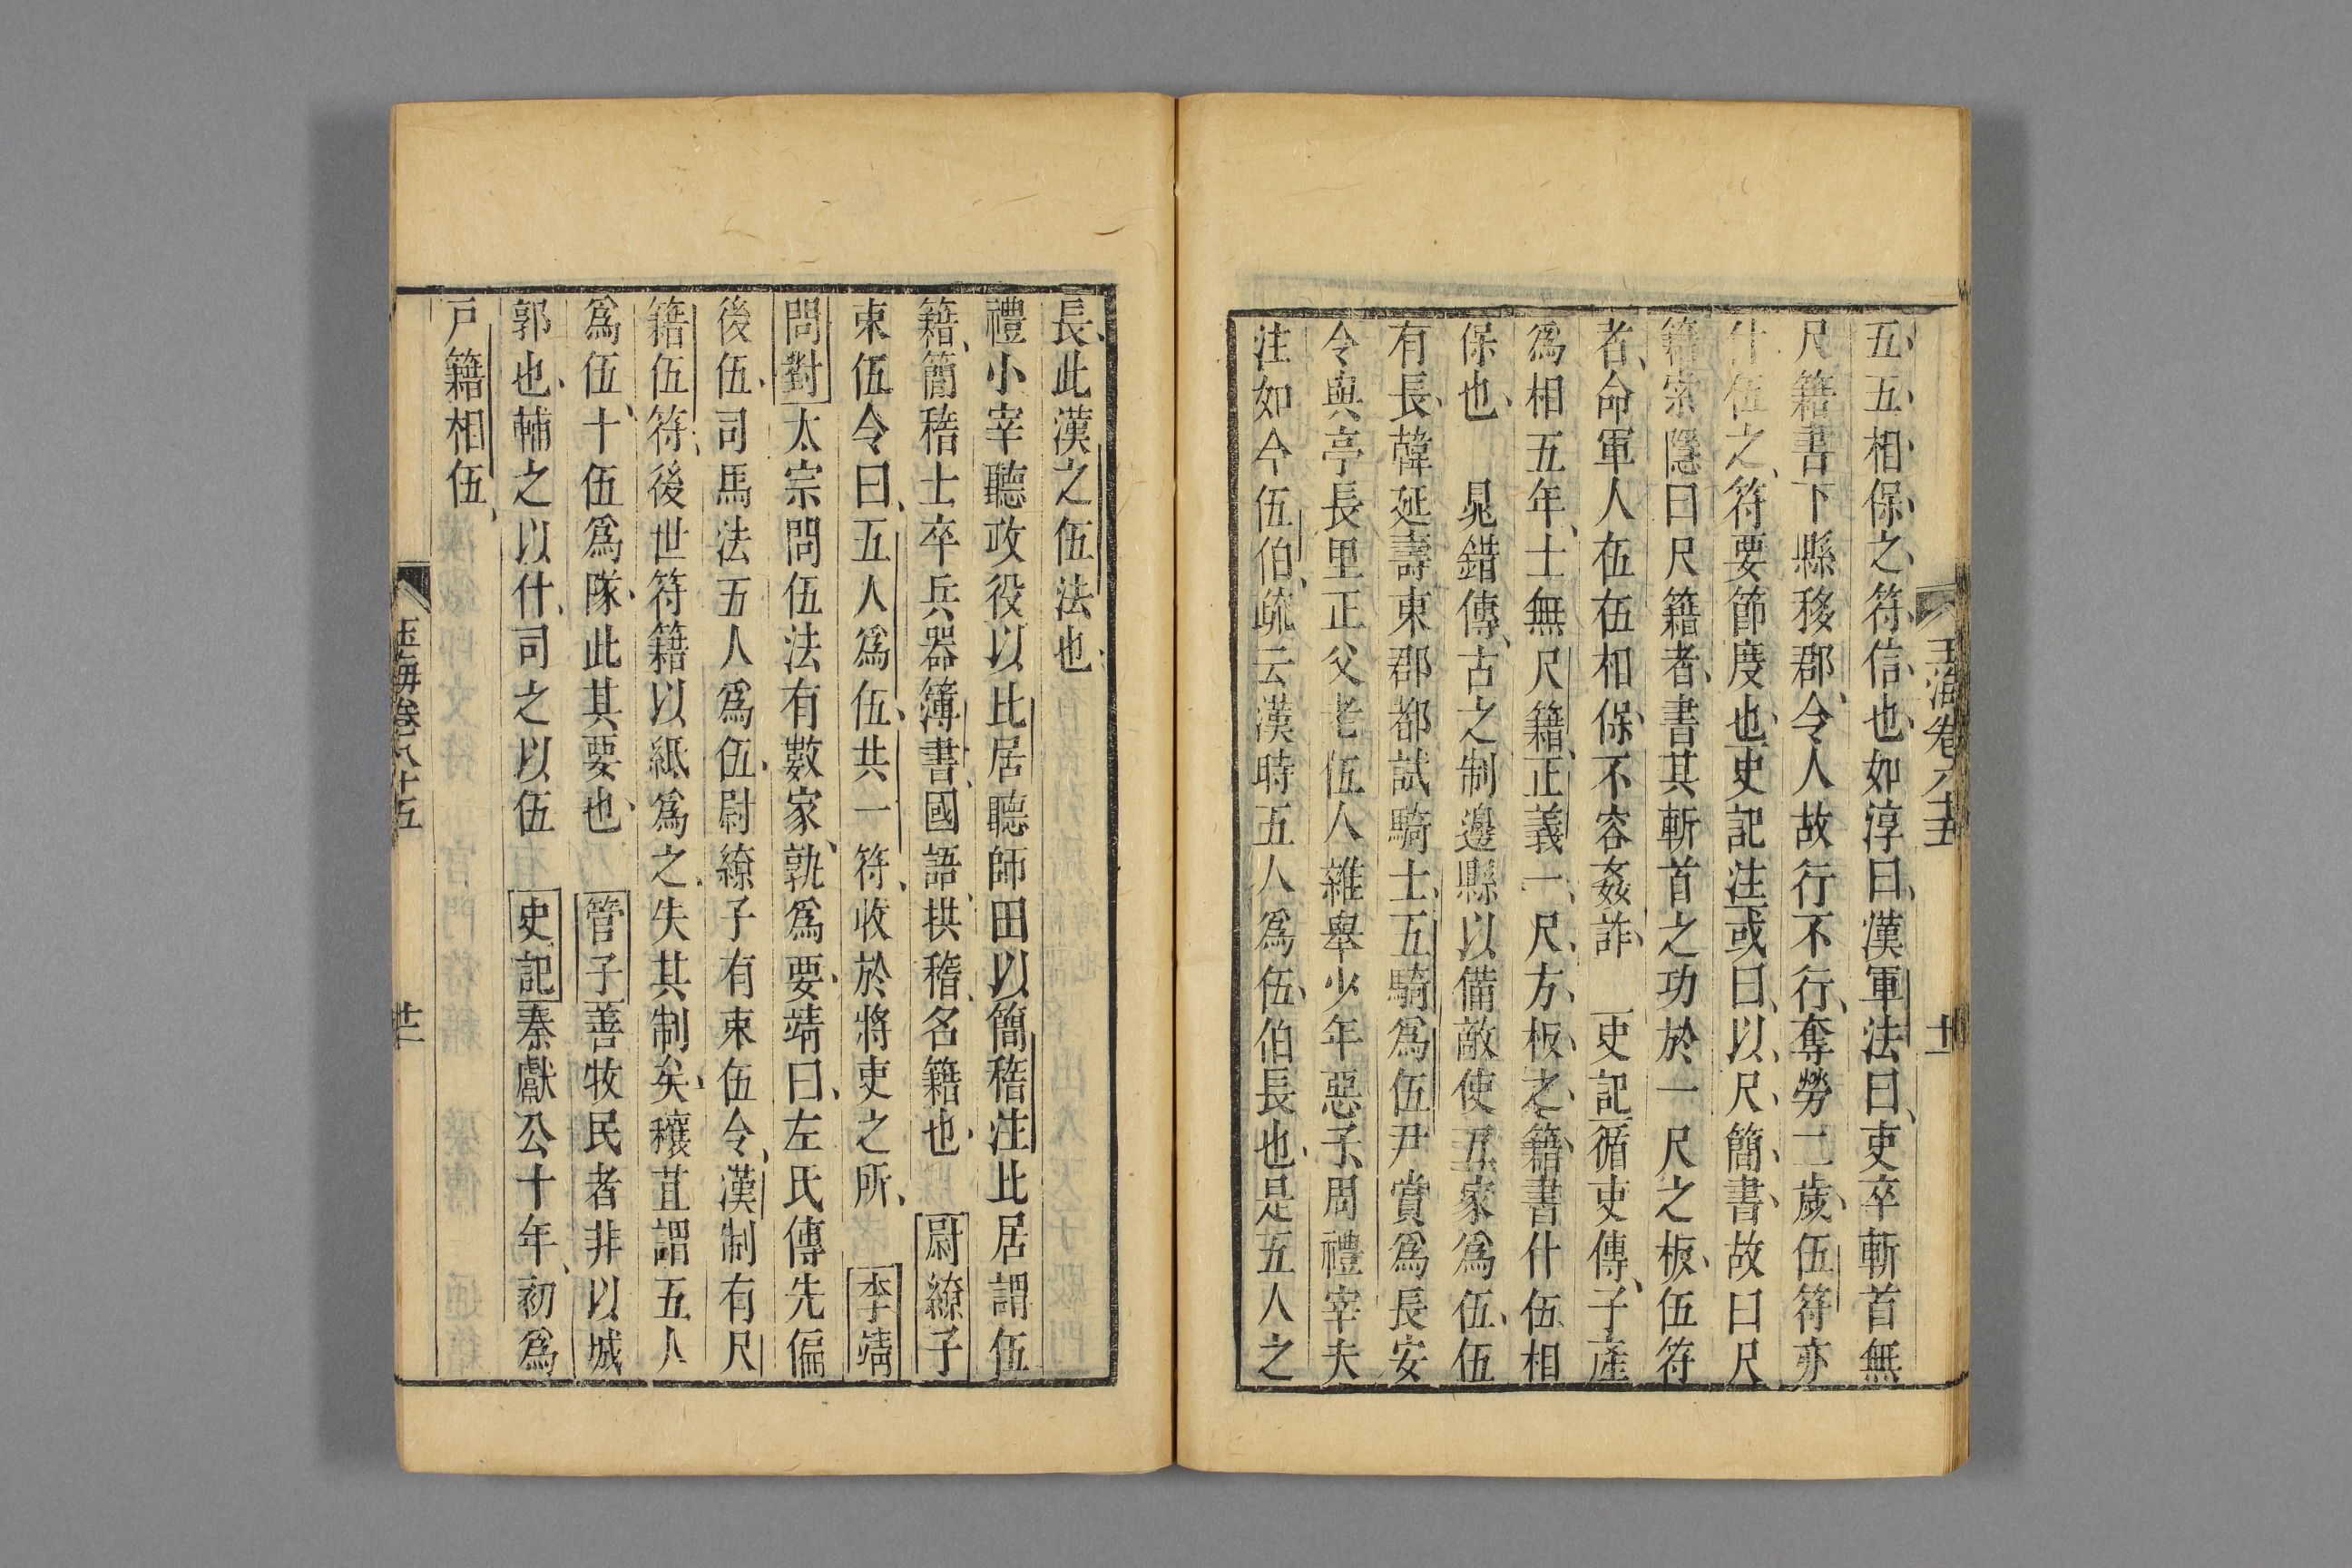 五五相保之符信也如淳曰漢軍法曰吏卒斬首無
尺籍書下縣移郡令人故行不行奪勞二歲伍符亦
什伍之符要節度也史記注或曰以尺簡書故曰尺
籍索隱曰尺籍者書其斬首之功於一尺之板伍符
者命軍人伍伍相保不容姦詐　史記循吏傳子產
為相五年士無尺籍正義一尺方板之籍書什伍相
保也　晁錯傳古之制邊縣以備敵使五家為伍伍
有長韓延壽東郡都試騎士五騎為伍尹賞為長安
令與亭長里正父老伍人雜舉少年惡子周禮宰夫
注如今伍伯疏云漢時五人為伍伯長也是五人之
玉海卷八十五
長此漢之伍法也
禮小宰聽政役以比居聽師田以簡稽注比居謂伍
籍簡稽士卒兵器簿書國語拱稽名籍也　尉繚子
束伍令曰五人為伍共一符收於將吏之所　李靖
問對太宗問伍法有數家孰為要靖曰左氏傳先偏
後伍司馬法五人為伍尉繚子有束伍令漢制有尺
籍伍符後世符籍以紙為之失其制矣穰苴謂五人
為伍十伍為隊此其要也　管子善牧民者非以城
郭也輔之以什司之以伍　史記秦獻公十年初為
戶籍相伍
玉海卷八十五